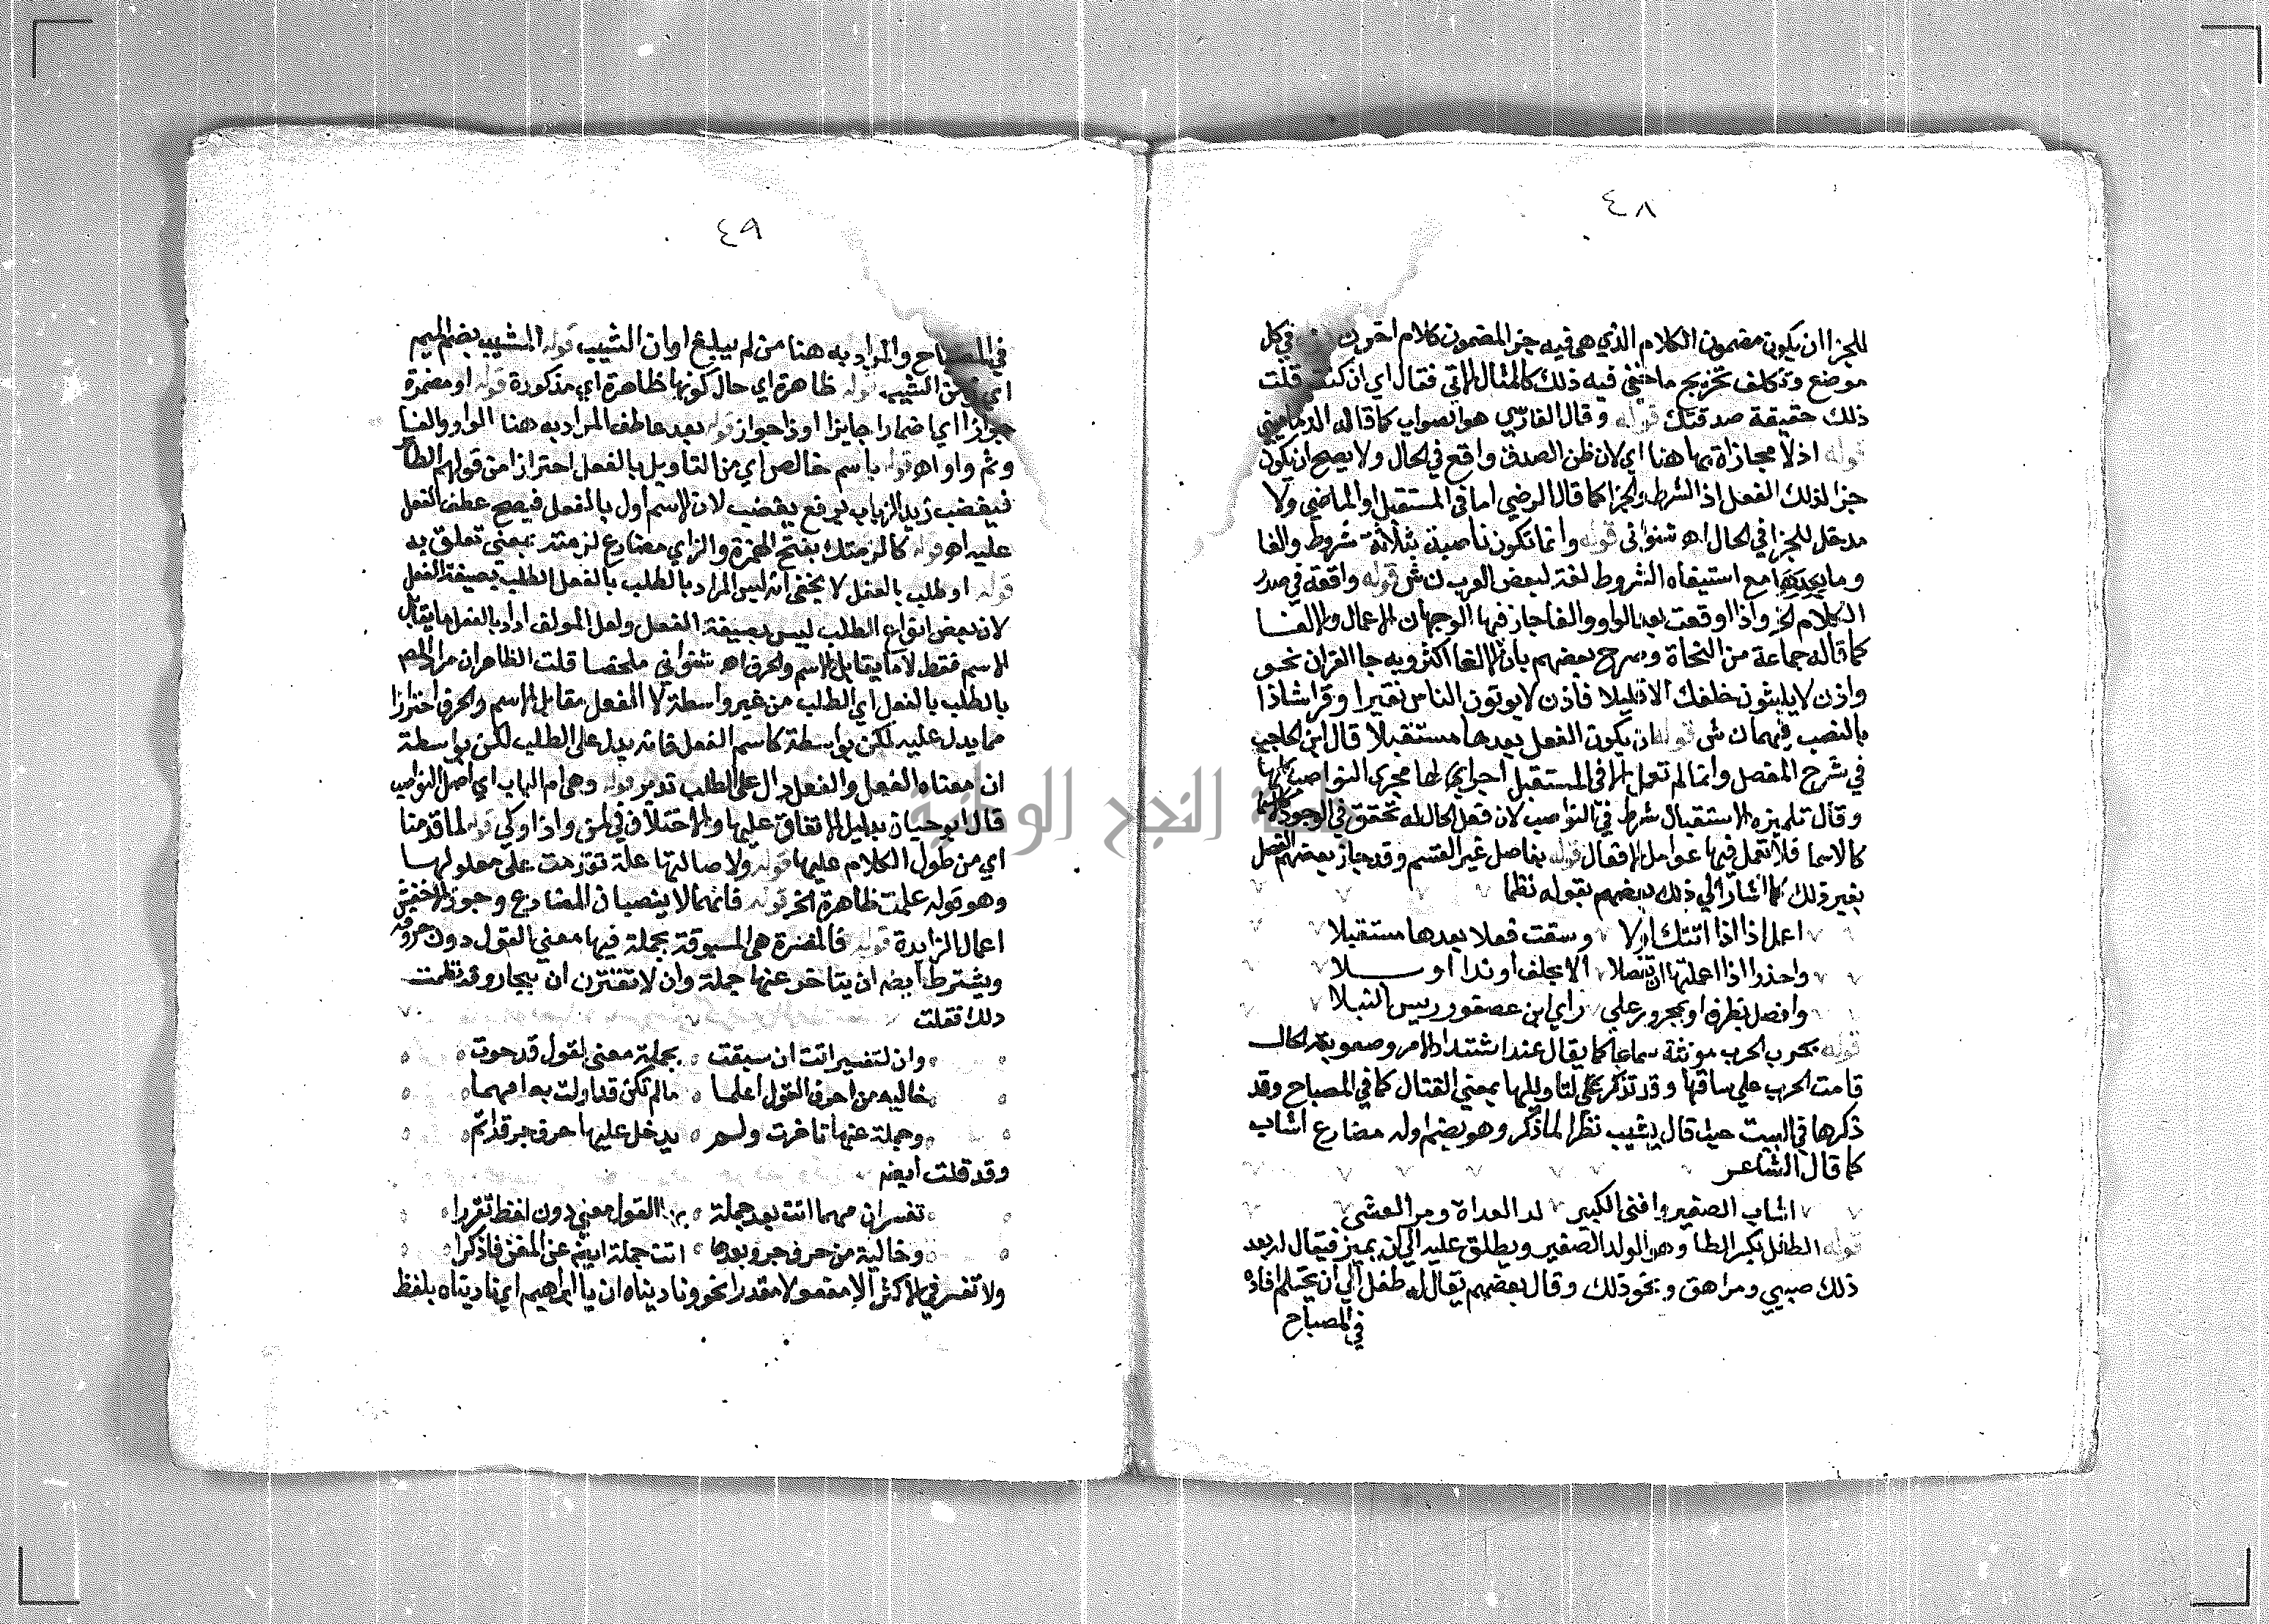 ٤٨
للجزا ان يكون مضمون الكلام الذي هي فيه جزا لمضمون كلام اخر في كل
موضع وتكلف تخريج ما خفي فيه ذلك كالمثال الاتي فقال اي ان كنت قلت
ذلك حقيقة صدقتك قوله وقال الفارسي هو الصواب كما قاله الدماميني
قوله اذ لا مجازاة بها هنا اي لان ظن الصدق واقع في الحال ولا يصح ان يكون
جزا لذلك الفعل اذ الشرط والجزا كما قال الرضي اما في المستقبل او الماضي ولا
مدخل للجزا في الحال اه شنواني قوله وانما تكون ناصبة بثلاثة شروط والغا
وها مع استيفاء الشروط لغة لبعض العرب ش قوله واقعة في صدر
الكلام الخ واذا وقعت بعد الواو والفا جاز فيها الوجهان الاعمال والالغـا
كما قاله جماعة من النحاة وصرح بعضهم بان الالغا اكثر وبه جا القران نحو
واذن لا يلبثون خلفك الا قليلا فاذن لا يوتون الناس نقيرا وقرا شاذا
بالنصب فيهما ش قوله ان يكون الفعل بعدها مستقبلا قال ابن الحاجب
في شرح المفصل وانما لم تعمل الا في المستقبل اجرا لها مجرى النواصب كلها
وقال تلميذه الاستقبال شرط في النواصب لان فعل الحال له تحقق في الوجود كالاسما
كالاسما فلا تعمل فيها عوامل الافعال قوله بفاصل غير القسم وقد جاز بعضهم الفصل
بغير ذلك كما اشار الي ذلك بعضهم بقوله نظما
اعمل اذا اذا اتتك اولا وسقت فعلا بعدها مستقبلا
واحذر اذا اعملتها ان تفصلا الا بحلف او ندا او بـلا
وافصل بظرف او بمجرور علي راي ابن عصفور رييس النبلا
قوله بحرب الحرب مونثة سماعا كما يقال عند اشتداد الامر وصعوبة الحال
قامت الحرب علي ساقها وقد تذكر علي تاويلها بمعني القتال كما في المصباح وقد
ذكرها في البيت حيث قال يشيب نظرا لما ذكر وهو بضم اوله مضارع اشاب
كما قال الشاعـر
اشاب الصغير وافنى الكبير الغداة ومر العشي
قوله الطفل بكسر الطا وهو الولد الصغير ويطلق عليه الي ان يميز فيقال له بعد
ذلك صبي ومراهق ونحو ذلك وقال بعضهم يقال له طفل الي ان يحتلم افاده
في المصباح
٤٩
في المصباح والمراد به هنا من لم يبلغ اوان الشيب قوله المشيب بضم الميم
اي زمن الشيب قوله ظاهرة اي حال كونها ظاهرة اي مذكورة قوله او مضمرة
جوازا اي اضمارا جايزا او ذا جواز قوله بعد عاطف المراد به هنا الواو والفا
وثم واو اه قوله باسم خالص اي من التاويل بالفعل احترازا من قولهم الطاير
فيغضب زيد الذباب برفع يغضب لان الاسم اول بالفعل فيصح عطف الفعل
عليه اه قوله كالزمتك بفتح الهمزة والزاي مضارع لزمته بمعني تعلق به
قوله او طلب بالفعل لا يخفي انه ليس المراد بالطلب بالفعل الطلب بصيغة الفعل
لان بعض انواع الطلب ليس بصيغة الفعل ولعل المولف اراد بالفعل ما يقابل
الاسم فقط لا ما يقابل الاسم والحرف اه شنواني ملخصا قلت الظاهر ان مرادهم
بالطلب بالفعل اي الطلب من غير واسطة لا الفعل مقابل الاسم والحرف احترازا
مما يدل عليه لكن بواسطة كاسم الفعل فانه يدل علي الطلب لكن بواسطة
ان معناه الفعل والفعل دال علي الطلب تدبر قوله وهي ام الباب اي اصل النواصب
قال ابو حيان بدليل الاتفاق عليها والاختلاف في لن واذا وكي قوله لما قدمنا
اي من طول الكلام عليها قوله ولاصالتها علة توزعت علي معلولهـا
وهو قوله عملت ظاهرة الخ قوله فانهما لا ينصبان المضارع وجوز الاخفش
اعمال الزايدة قوله فالمفسرة هي المسبوقة بجملة فيها معني القول دون حروفه
ويشترط ايضا ان يتاخر عنها جملة وان لا تقترن ان بجار وقد نظمت
ذلك فقلت
وان لتفسير اتت ان سبقت بجملة معني لقول قد حوت
خاليه من احرف القول اعلمـا مالم تكن قد اولت بها افهمـا
وجملة عنها تاخرت ولـم يدخل عليها حرف جر قد اتم
وقد قلت ايضا
تفسر ان مهما اتت بعد جملة بها القول معني دون لفظ تقررا
وخالية من حرف جر وبعدها اتت جملة ابنه عن المغن فاذكرا
ولا تفسر في الاكثر الا مفعولا مقدرا نحو وناديناه ان يا ابراهيم اي ناديناه بلفظ